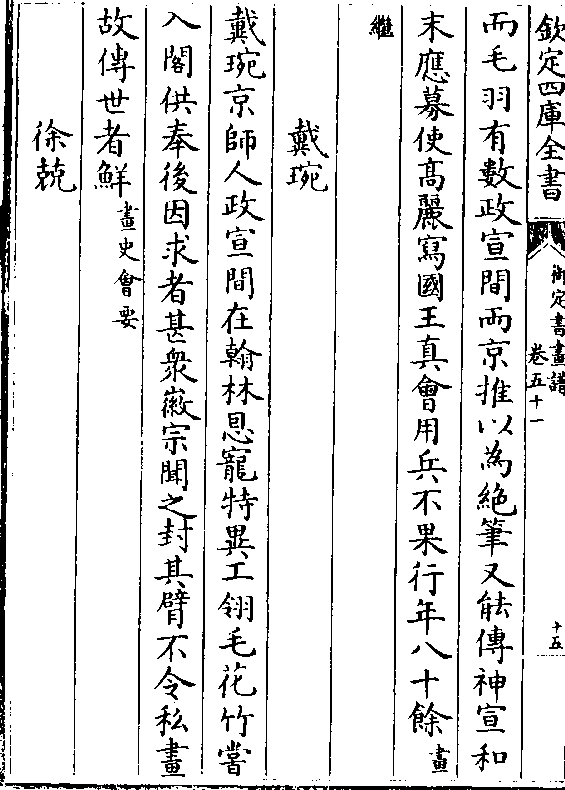 欽定四庫全書
御定書畫譜
卷五十一
十五
而毛羽有數政宣間兩京推以為絶筆又能傳神宣和
末應募使髙麗寫國王真會用兵不果行年八十餘畫
繼
戴琬
戴琬京師人政宣間在翰林恩寵特異工翎毛花竹嘗
入閣供奉後因求者甚衆徽宗聞之封其臂不令私畫
故傳世者鮮畫史會要
徐兢